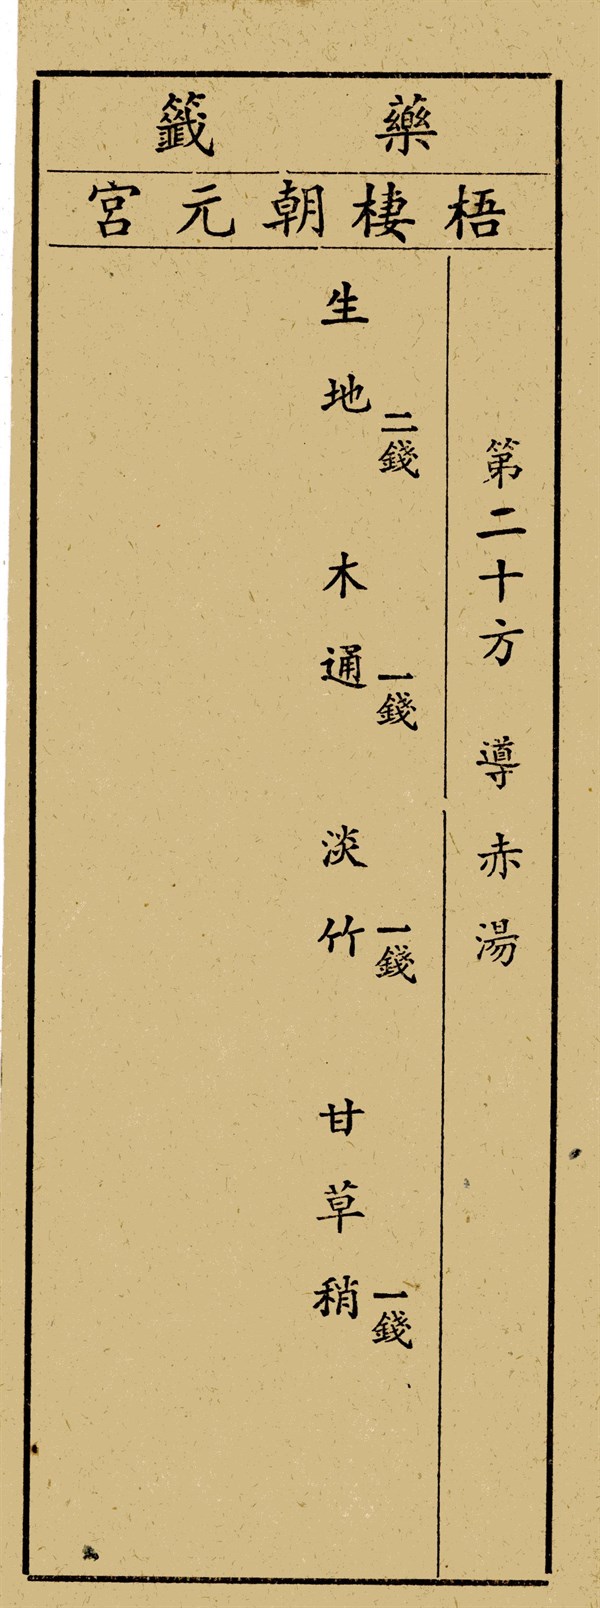 藥籤
梧棲朝元宮
第二十方 導赤湯
生地二錢 木通一錢 淡竹一錢 甘草稍一錢